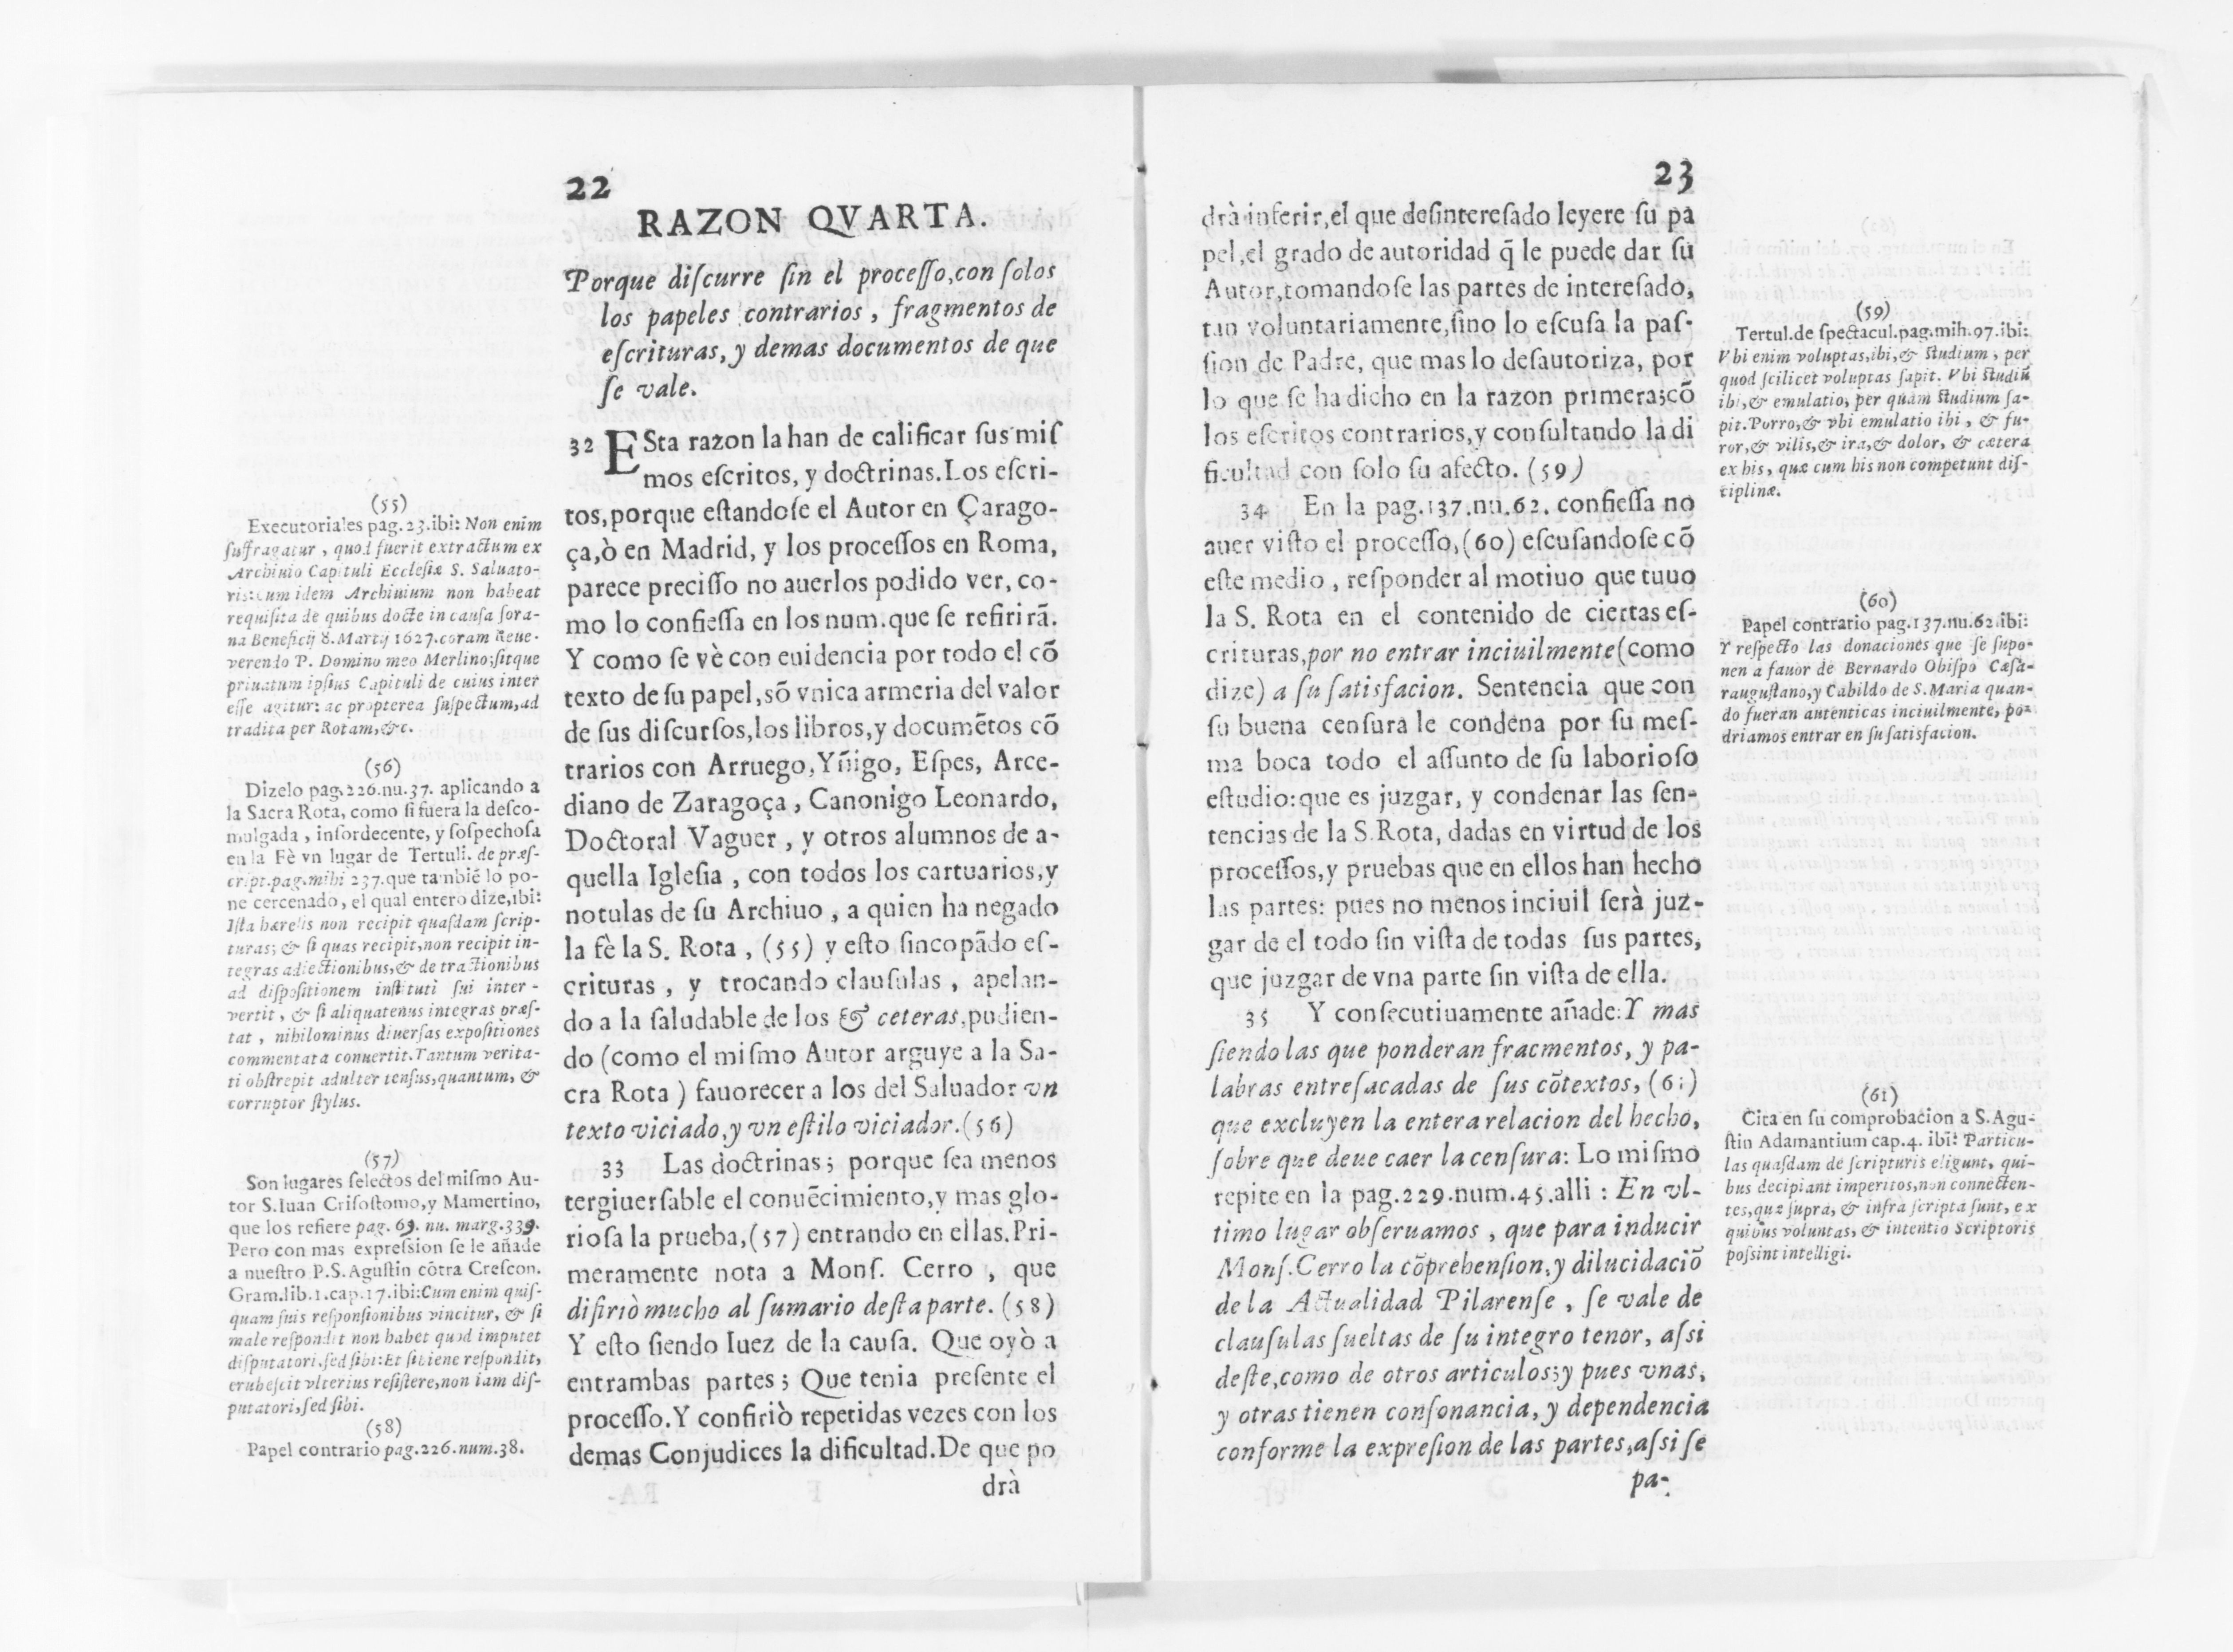 22
RAZON QVARTA.
Porque diſcurre ſin el proceſſo,con ſolos
los papeles contrarios, fragmentos de
eſcrituras, y demas documentos de que
ſe vale.
32 ESta razon la han de calificar ſus miſ
mos eſcritos, y doctrinas.Los eſcri-
tos,porque eſtandoſe el Autor en Çarago-
ça,ò en Madrid, y los proceſſos en Roma,
parece preciſſo no auerlos podido ver, co-
mo lo confieſſa en los num.que ſe refirirã.
Y como ſe vè con euidencia por todo el cõ
texto de ſu papel,sõ vnica armeria del valor
de ſus diſcurſos,los libros,y documẽtos cõ
trarios con Arruego,Yñigo, Eſpes, Arce-
diano de Zaragoça, Canonigo Leonardo,
Doctoral Vaguer, y otros alumnos de a-
quella Igleſia, con todos los cartuarios,y
notulas de ſu Archiuo, a quien ha negado
la fè la S. Rota, (55) y eſto ſincopãdo eſ-
crituras, y trocando clauſulas, apelan-
do a la ſaludable de los & ceteras,pudien-
do (como el miſmo Autor arguye a la Sa-
cra Rota) fauorecer a los del Saluador vn
texto viciado,y vn eſtilo viciador.(56)
33 Las doctrinas; porque ſea menos
tergiuerſable el conuẽcimiento,y mas glo-
rioſa la prueba,(57) entrando en ellas.Pri-
meramente nota a Monſ. Cerro, que
difiriò mucho al ſumario deſta parte. (58)
Y eſto ſiendo Iuez de la cauſa. Que oyò a
entrambas partes; Que tenia preſente el
proceſſo.Y confiriò repetidas vezes con los
demas Conjudices la dificultad.De que po
drà
(55)
Executoriales pag.23.ibi: Non enim
ſuffragatur, quod fuerit extractum ex
Archiuio Capituli Eccleſiæ S. Saluato-
ris:cum idem Archiuium non habeat
requiſita de quibus docte in cauſa ſora-
na Beneficij 8.Martij 1627.coram Reue-
verendo P. Domino meo Merlino;ſitque
priuatum ipſius Capituli de cuius inter
eſſe agitur: ac propterea ſuſpectum,ad
tradita per Rotam,&c.
(56)
Dizelo pag.226.nu.37. aplicando a
la Sacra Rota, como ſi fuera la deſco-
mulgada, inſordecente, y ſoſpechoſa
en la Fè vn lugar de Tertuli. de præſ-
cript.pag.mihi 237.que tambiẽ lo po-
ne cercenado, el qual entero dize,ibi:
Iſta hæreſis non recipit quaſdam ſcrip-
turas; & ſi quas recipit,non recipit in-
tegras adiectionibus,& de tractionibus
ad diſpoſitionem inſtituti ſui inter-
vertit, & ſi aliquatenus integras præſ-
tat, nihilominus diuerſas expoſitiones
commentata conuertit.Tantum verita-
ti obſtrepit adulter ſenſus,quantum, &
corruptor ſtylus.
(57)
Son lugares ſelectos del miſmo Au-
tor S.Iuan Criſoſtomo,y Mamertino,
que los refiere pag. 69. nu. marg.339.
Pero con mas expreſsion ſe le añade
a nueſtro P.S.Aguſtin cõtra Creſcon.
Gram.lib.1.cap.17.ibi:Cum enim quiſ-
quam ſuis reſponſionibus vincitur, & ſi
male reſpondit non habet quod imputet
diſputatori,ſed ſibi:Et ſi bene reſpondit,
erubeſcit vlterius reſiſtere,non iam diſ-
putatori,ſed ſibi.
(58)
Papel contrario pag.226.num.38.
23
drà inferir,el que deſintereſado leyere ſu pa
pel,el grado de autoridad q̃ le puede dar ſu
Autor,tomandoſe las partes de intereſado,
tan voluntariamente,ſino lo eſcuſa la paſ-
ſion de Padre, que mas lo deſautoriza, por
lo que ſe ha dicho en la razon primera;cõ
los eſcritos contrarios,y conſultando la di
ficultad con ſolo ſu afecto. (59)
34 En la pag.137.nu.62. confieſſa no
auer viſto el proceſſo,(60) eſcuſandoſe cõ
eſte medio, reſponder al motiuo que tuuo
la S. Rota en el contenido de ciertas eſ-
crituras,por no entrar inciuilmente(como
dize) a ſu ſatisfacion. Sentencia que con
ſu buena cenſura le condena por ſu meſ-
ma boca todo el aſſunto de ſu laborioſo
eſtudio:que es juzgar, y condenar las ſen-
tencias de la S.Rota, dadas en virtud de los
proceſſos,y pruebas que en ellos han hecho
las partes: pues no menos inciuil ſerà juz-
gar de el todo ſin viſta de todas ſus partes,
que juzgar de vna parte ſin viſta de ella.
35 Y conſecutiuamente añade:Y mas
ſiendo las que ponderan fracmentos, y pa-
labras entreſacadas de ſus cõtextos, (61)
que excluyen la entera relacion del hecho,
ſobre que deue caer la cenſura: Lo miſmo
repite en la pag.229.num.45.alli: En vl-
timo lugar obſeruamos, que para inducir
Monſ.Cerro la cõprehenſion,y dilucidaciõ
de la Actualidad Pilarenſe, ſe vale de
clauſulas ſueltas de ſu integro tenor, aſsi
deſte,como de otros articulos;y pues vnas,
y otras tienen conſonancia, y dependencia
conforme la expreſion de las partes,aſsi ſe
pa-
(59)
Tertul.de ſpectacul.pag.mih.97.ibi:
Vbi enim voluptas,ibi,& ſtudium, per
quod ſcilicet voluptas ſapit. Vbi ſtudiũ
ibi,& emulatio, per quam ſtudium ſa-
pit.Porro,& vbi emulatio ibi, & fu-
ror,& vilis,& ira,& dolor, & cætera
ex his, quæ cum his non competunt diſ-
ciplinæ.
(60)
Papel contrario pag.137.nu.62.ibi:
Y reſpecto las donaciones que ſe ſupo-
nen a fauor de Bernardo Obiſpo Cæſa-
rauguſtano,y Cabildo de S.Maria quan-
do fueran autenticas inciuilmente, po-
driamos entrar en ſu ſatisfacion.
(61)
Cita en ſu comprobacion a S.Agu-
ſtin Adamantium cap.4. ibi: Particu-
las quaſdam de ſcripturis eligunt, qui-
bus decipiant imperitos,non connecten-
tes,quæ ſupra, & infra ſcripta ſunt, ex
quibus voluntas, & intentio Scriptoris
poſsint intelligi.